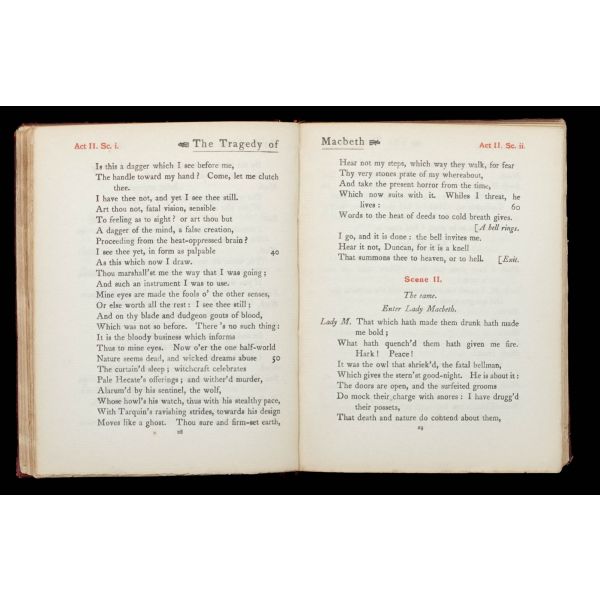 Act II. Sc. i.
The Tragedy of
Is this a dagger which I see before me,
The handle toward my hand? Come, let me clutch
thee.
I have thee not, and yet I see thee still.
Art thou not, fatal vision, sensible
To feeling as to sight? or art thou but
A dagger of the mind, a false creation,
Proceeding from the heat-oppressed brain?
I see thee yet, in form as palpable 40
As this which now I draw.
Thou marshall'st me the way that I was going;
And such an instrument I was to use.
Mine eyes are made the fools o' the other senses,
Or else worth all the rest: I see thee still;
And on thy blade and dudgeon gouts of blood,
Which was not so before. There 's no such thing:
It is the bloody business which informs
Thus to mine eyes. Now o'er the one half-world
Nature seems dead, and wicked dreams abuse 50
The curtain'd sleep; witchcraft celebrates
Pale Hecate's offerings; and wither'd murder,
Alarum'd by his sentinel, the wolf,
Whose howl's his watch, thus with his stealthy pace,
With Tarquin's ravishing strides, towards his design
Moves like a ghost. Thou sure and firm-set earth,
28
Macbeth
Act II. Sc. ii.
Hear not my steps, which way they walk, for fear
Thy very stones prate of my whereabout,
And take the present horror from the time,
Which now suits with it. Whiles I threat, he
lives: 60
Words to the heat of deeds too cold breath gives.
[A bell rings.
I go, and it is done: the bell invites me.
Hear it not, Duncan, for it is a knell
That summons thee to heaven, or to hell. [Exit.
Scene II.
The same.
Enter Lady Macbeth.
Lady M. That which hath made them drunk hath made
me bold;
What hath quench'd them hath given me fire.
Hark! Peace!
It was the owl that shriek'd, the fatal bellman,
Which gives the stern'st good-night. He is about it:
The doors are open, and the surfeited grooms
Do mock their charge with snores: I have drugg'd
their possets,
That death and nature do contend about them,
29